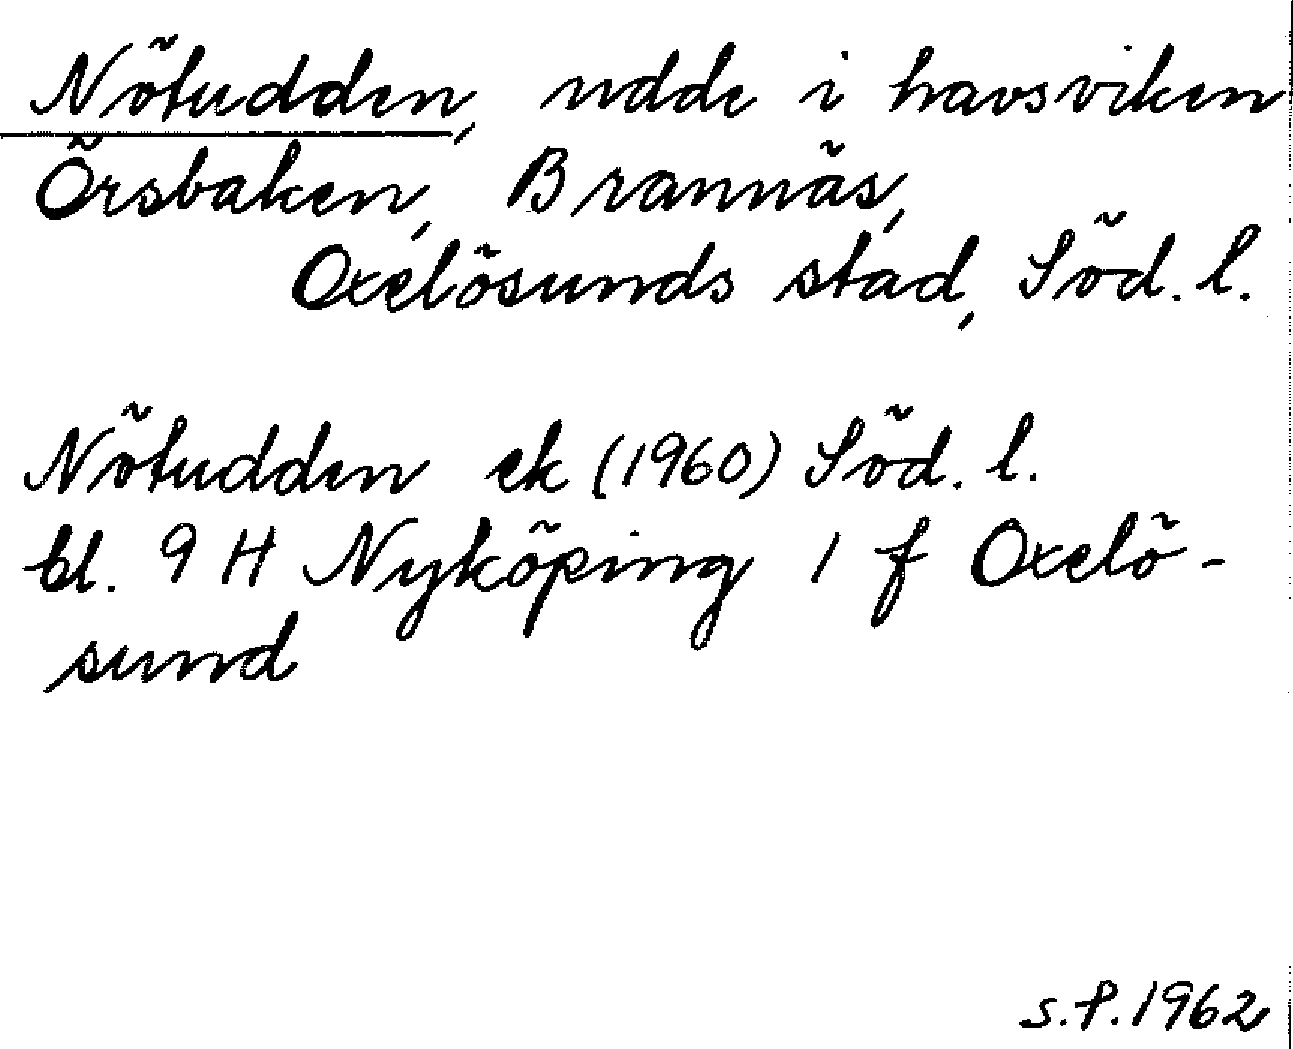 Nötudden, udde i havsviken
Örsbaken, Brannäs,
Oxelösunds stad, Söd. l.
Nötudden ek (1960) Söd. l.
bl. 9 H Nyköping 1 f Oxelö-
sund
S.P. 1962